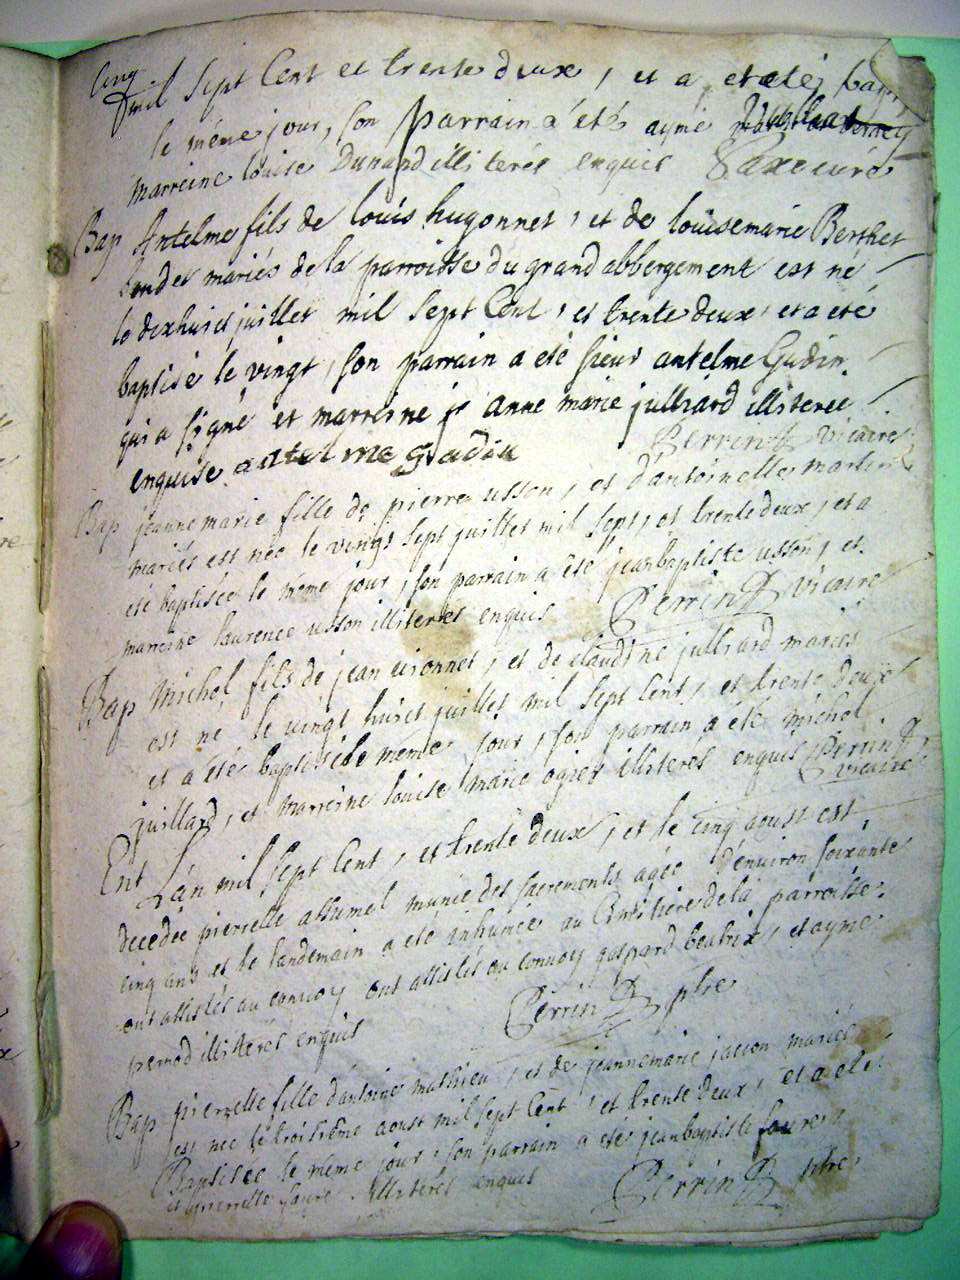 Cinq
mil sept Cent et trente deux, et a etéé bapt
le même jour, son parrain a été aymé
marreine louise Dunand illiterés enquis Saxe curé
Bap Antelme fils de louis hugonnet, et de louise marie Berthet
mariés de la parroisse du grand abbergement est né
le dixhuict juillet mil sept Cent, et trente deux, et a eté
baptisé le vingt, son parrain a eté sieur antelme Gudin
qui a signé et marreine jr anne marie julliard illiteree
enquise antelme Gudin Perrin vicaire
Bap jeanne marie fille de pierre usson, et d'antoinette martin
mariés est née le vingt sept juillet mil sept, et trente deux, et a
eté baptisée le meme jour, son parrain a eté jean baptiste usson, et
marreine laurence usson illiterés enquis Perrin vicaire
Bap Michel fils de jean uionnet, et de claudine julliard mariés
est né le vingt huict juillet mil sept Cent, et trente deux
et a eté baptisé le meme jour, son parrain a eté michel
juillard, et marreine louise marie ogier illiterés enquis Perrin
vicaire
Ent L'an mil sept Cent, et trente deux, et le cinq aoust est
decedée pierrette assumel munie des sacrements agée d'environ soixante
cinq ans et le landemain a eté inhumée au Cimetiere de la parroisse
ont assistés au convoy ont assistés au convoy gaspard beatrix, et ayme
illiterés enquis Perrin ptre
Bap pierrette fille d'antoine mathieu, et de jeanne marie jacson mariés
est nee le troisième aoust mil sept Cent, et trente deux, et a eté
Baptisée le même jour, son parrain a eté jean baptiste faure
et pierrette faure illiterés enquis Perrin ptre